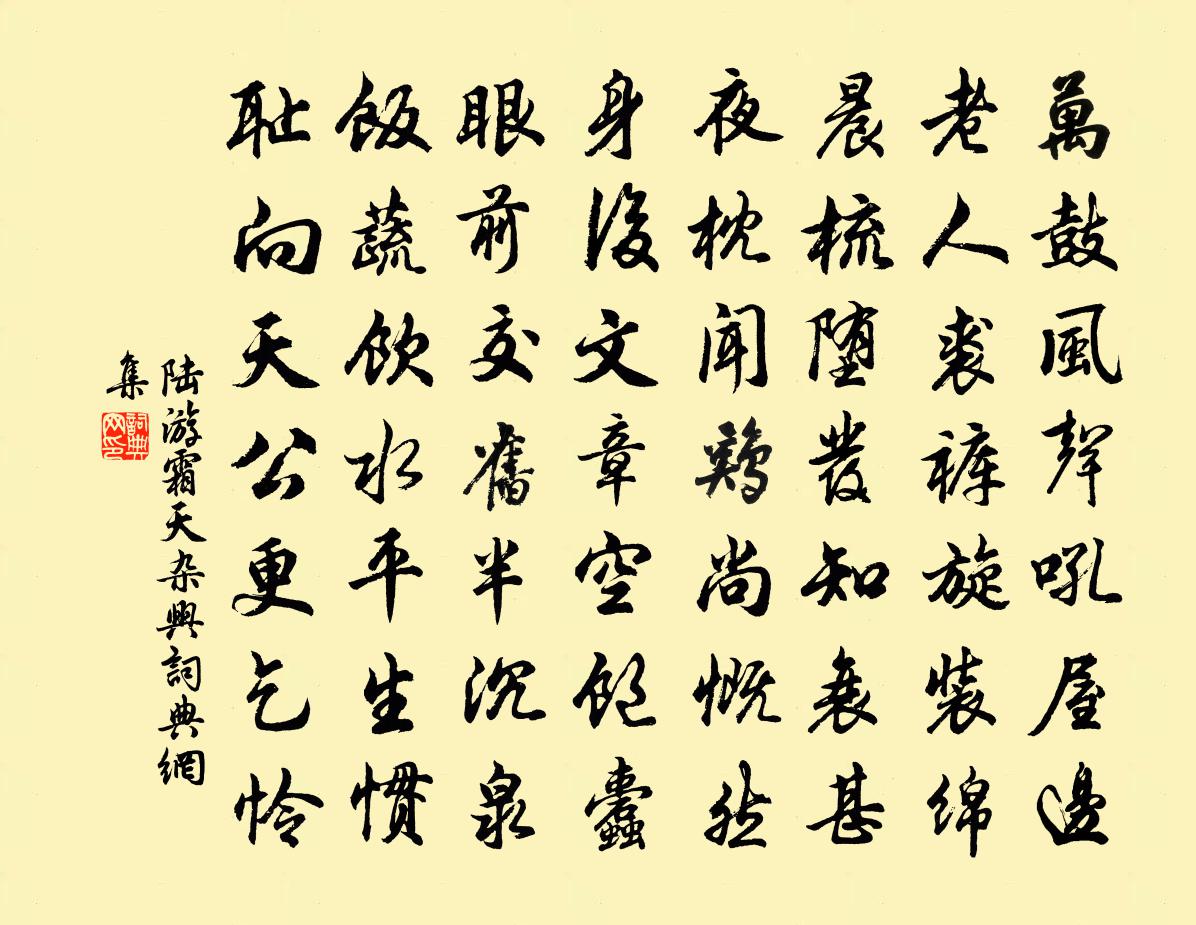 萬鼓風聲吼屋邊
老人裘褲旋裝綿
晨梳墮發知衰甚
夜枕聞鷄尚慨然
身後文章空飽蠹
眼前交舊半沉泉
飯蔬飲水平生慣
耻向天公更乞怜
陆游霜天杂興詞典網
集
詞典
网印